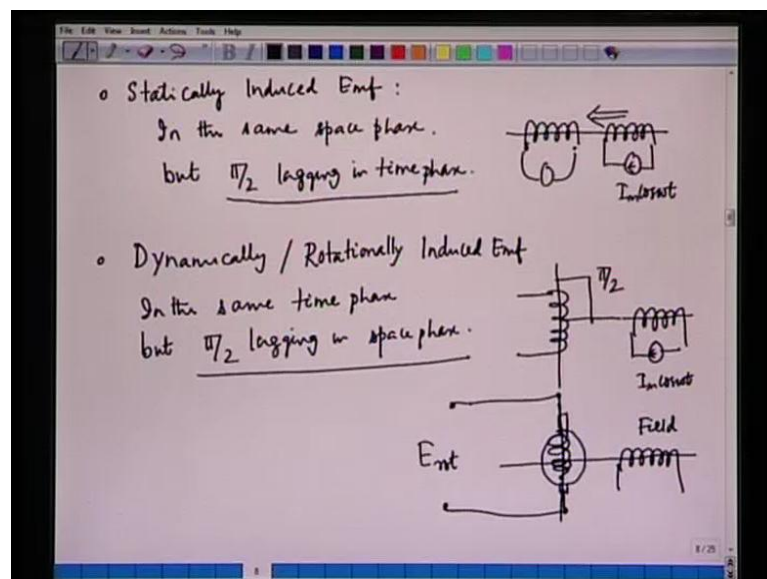 File Edit View Insert Actions Tools Help
B I
• Statically Induced Emf :
In the same space phase.
but π/2 lagging in time phase.
Im cosωt
• Dynamically / Rotationally Induced Emf
In the same time phase
but π/2 lagging in space phase.
π/2
Im cosωt
Field
Erot
8/25
8